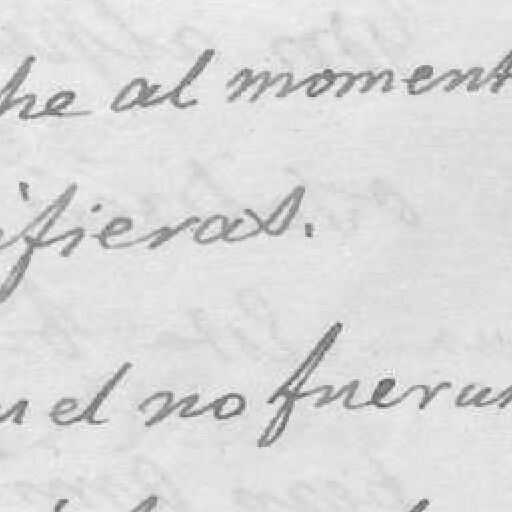 he al moment
ifieras.
el no fueran